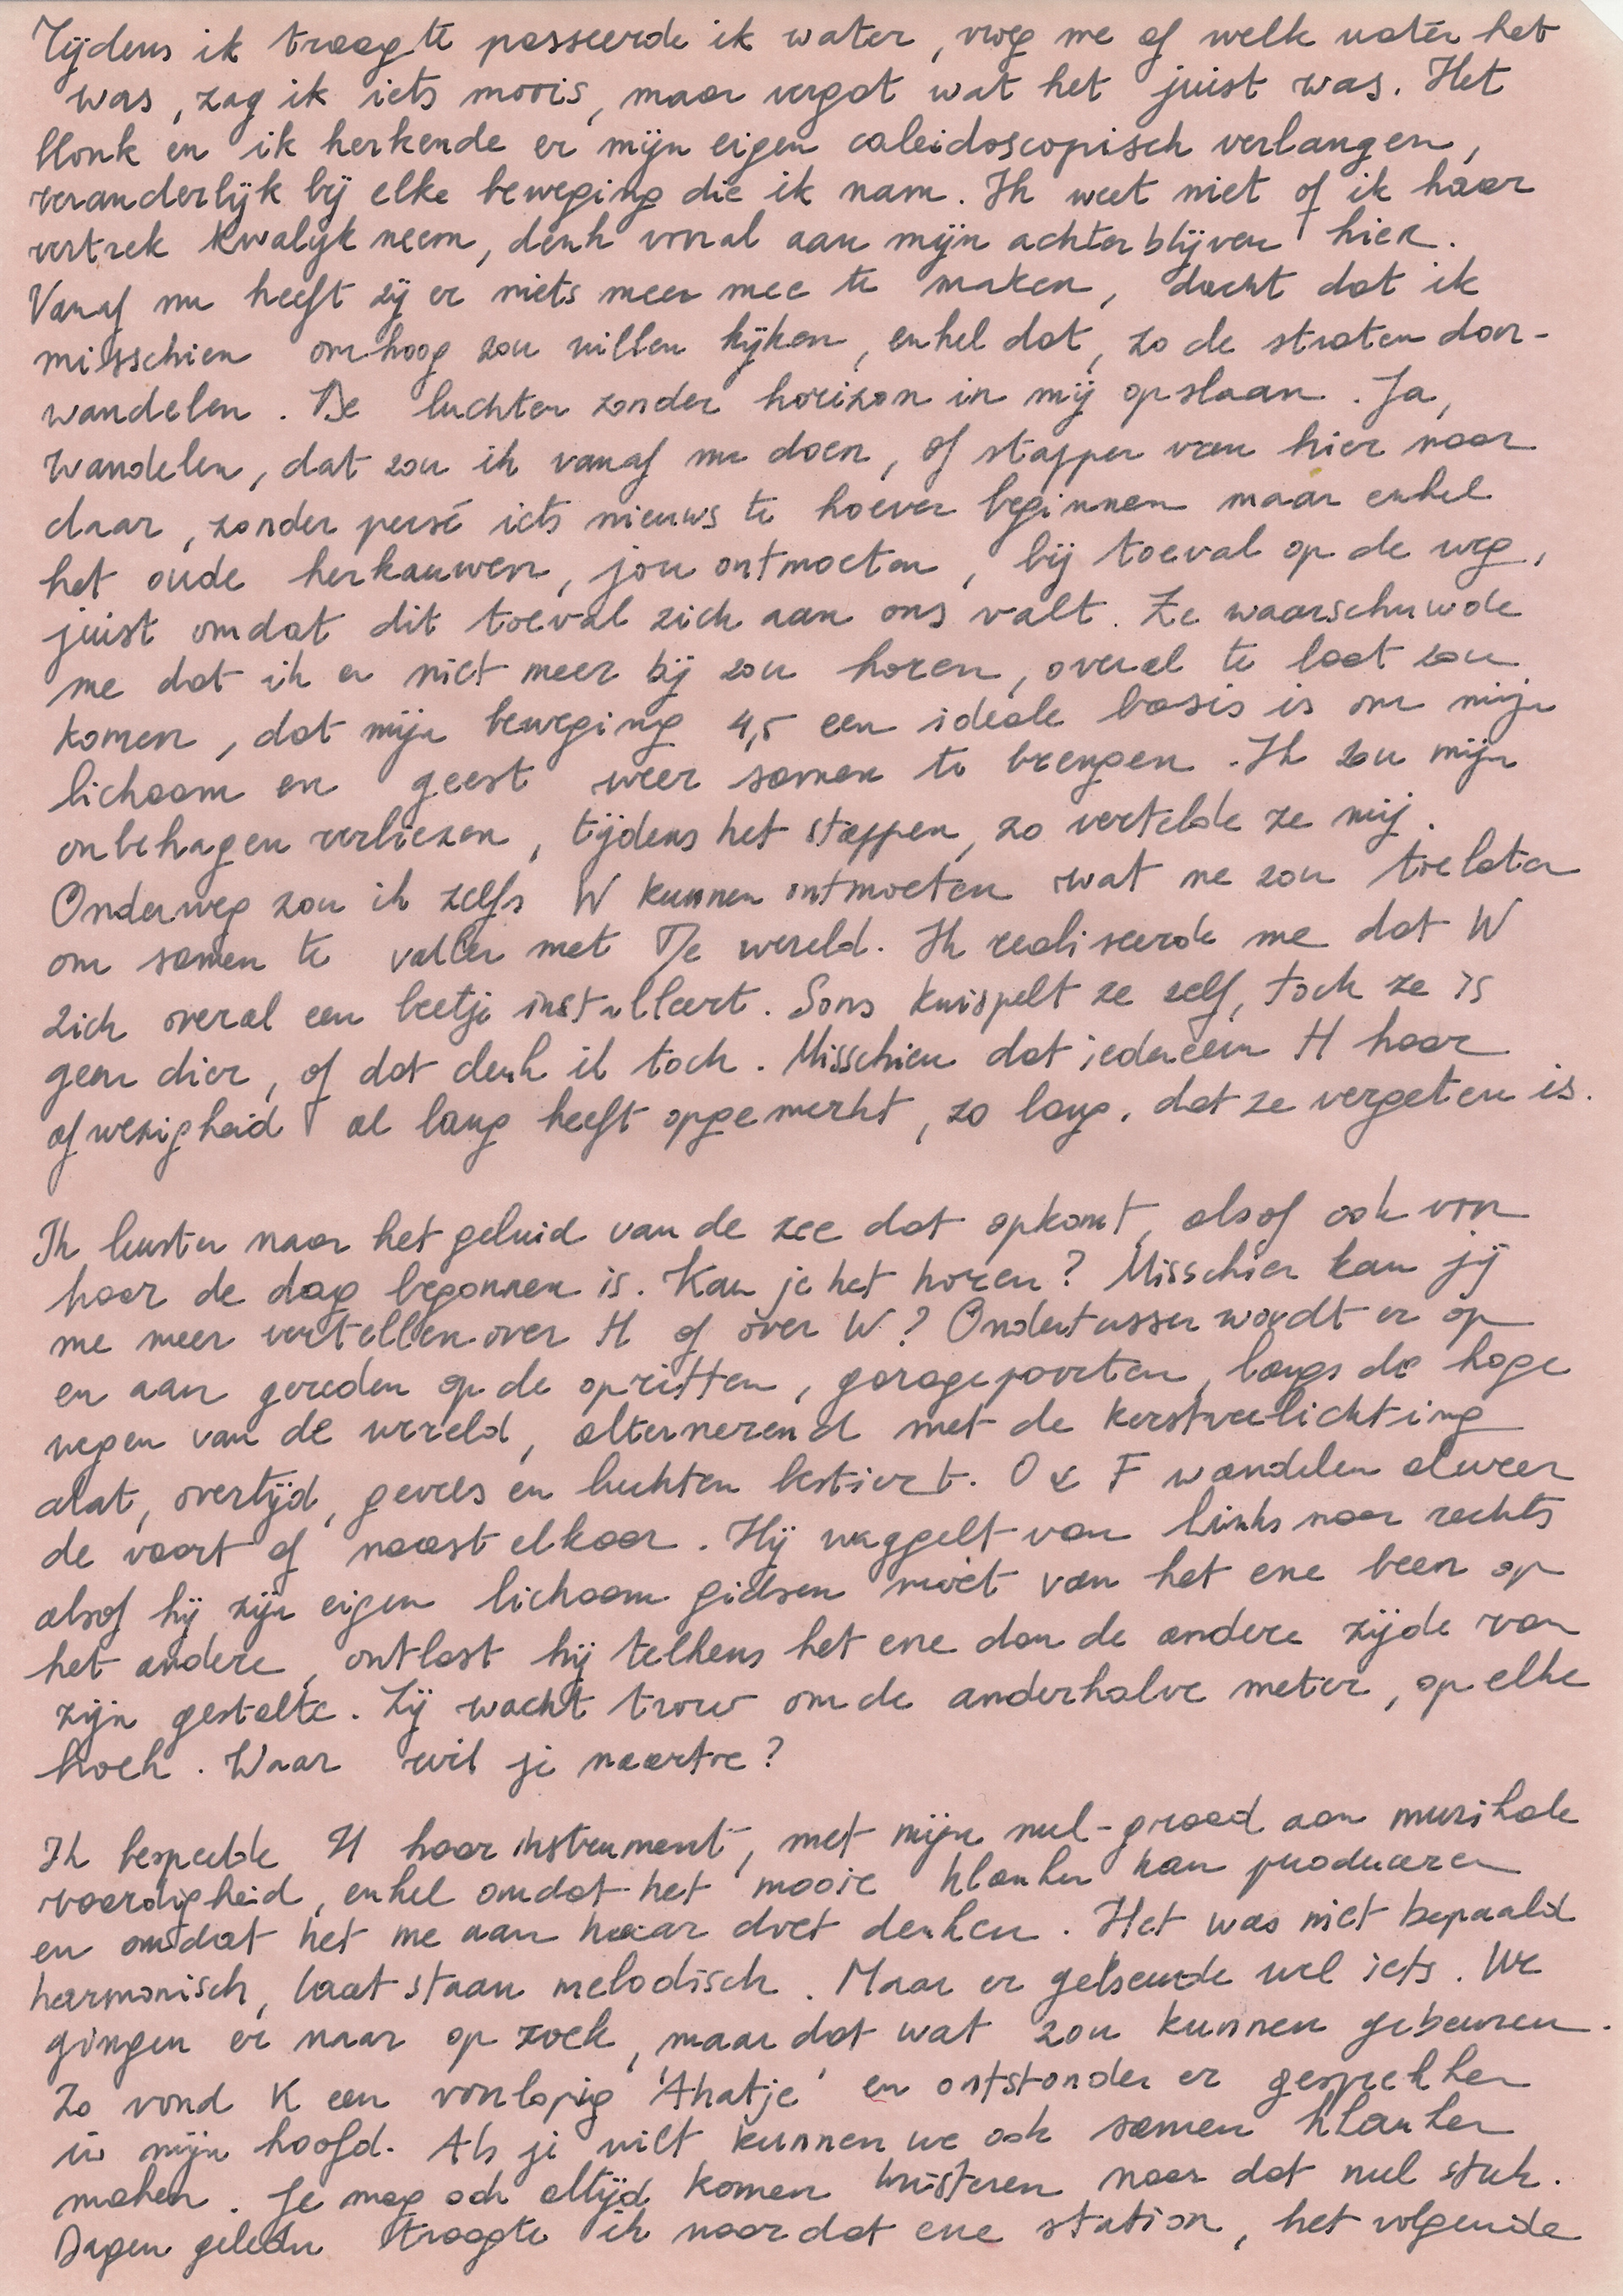 Tijdens ik traagte passeerde ik water, vroeg me af welk water het
was, zag ik iets moois, maar vergat wat het juist was. Het
blonk en ik herkende er mijn eigen caleidoscopisch verlangen,
veranderlijk bij elke beweging die ik nam. Ik weet niet of ik haar
vertrek kwalijk neem, denk vooral aan mijn achterblijven hier.
Vanaf nu heeft zij er niets meer mee te maken, dacht dat ik
misschien omhoog zou willen kijken, enkel dat, zo de straten door-
wandelen. De luchten zonder horizon in mij opslaan. Ja,
wandelen, dat zou ik vanaf nu doen, of stappen van hier naar
daar, zonder persé iets nieuws te hoeven beginnen maar enkel
het oude herkauwen, jou ontmoeten, bij toeval op de weg,
juist omdat dit toeval zich aan ons valt. Ze waarschuwde
me dat ik er niet meer bij zou horen, overal te laat zou
komen, dat mijn beweging 4,5 een ideale basis is om mijn
lichaam en geest weer samen te brengen. Ik zou mijn
onbehagen verliezen, tijdens het stappen, zo vertelde ze mij.
Onderweg zou ik zelfs W kunnen ontmoeten wat me zou toelaten
om samen te vallen met De wereld. Ik realiseerde me dat W
zich overal een beetje installeert. Soms kwispelt ze zelf, toch ze is
geen dier, of dat denk ik toch. Misschien dat iedereen H haar
afwezigheid al lang heeft opgemerkt, zo lang, dat ze vergeten is.
Ik luister naar het geluid van de zee dat opkomt, alsof ook voor
haar de dag begonnen is. Kan je het horen? Misschien kan jij
me meer vertellen over H of over W? Ondertussen wordt er op
en aan gereden op de opritten, garagepoorten, langs de hoge
wegen van de wereld, alternerend met de kerstverlichting
dat, overtijd, gevels en luchten bestiert. O & F wandelen alweer
de vaart of naast elkaar. Hij waggelt van links naar rechts
alsof hij zijn eigen lichaam gidsen moet van het ene been op
het andere, ontlast hij telkens het ene dan de andere zijde van
zijn gestalte. Zij wacht trouw om de anderhalve meter, op elke
hoek. Waar wil je naartoe?
Ik bespeelde H haar instrument, met mijn nul-graad aan muzikale
vaardigheid, enkel omdat het mooie klanken kan produceren
en omdat het me aan haar doet denken. Het was niet bepaald
harmonisch, laat staan melodisch. Maar er gebeurde wel iets. We
gingen er naar op zoek, maar dat wat zou kunnen gebeuren.
Zo vond K een voorlopig 'Ahatje' en ontstonden er gesprekken
in mijn hoofd. Als je wilt kunnen we ook samen klanken
maken. Je mag ook altijd komen luisteren naar dat nul stuk.
Dagen geleden traagte ik naar dat ene station, het volgende